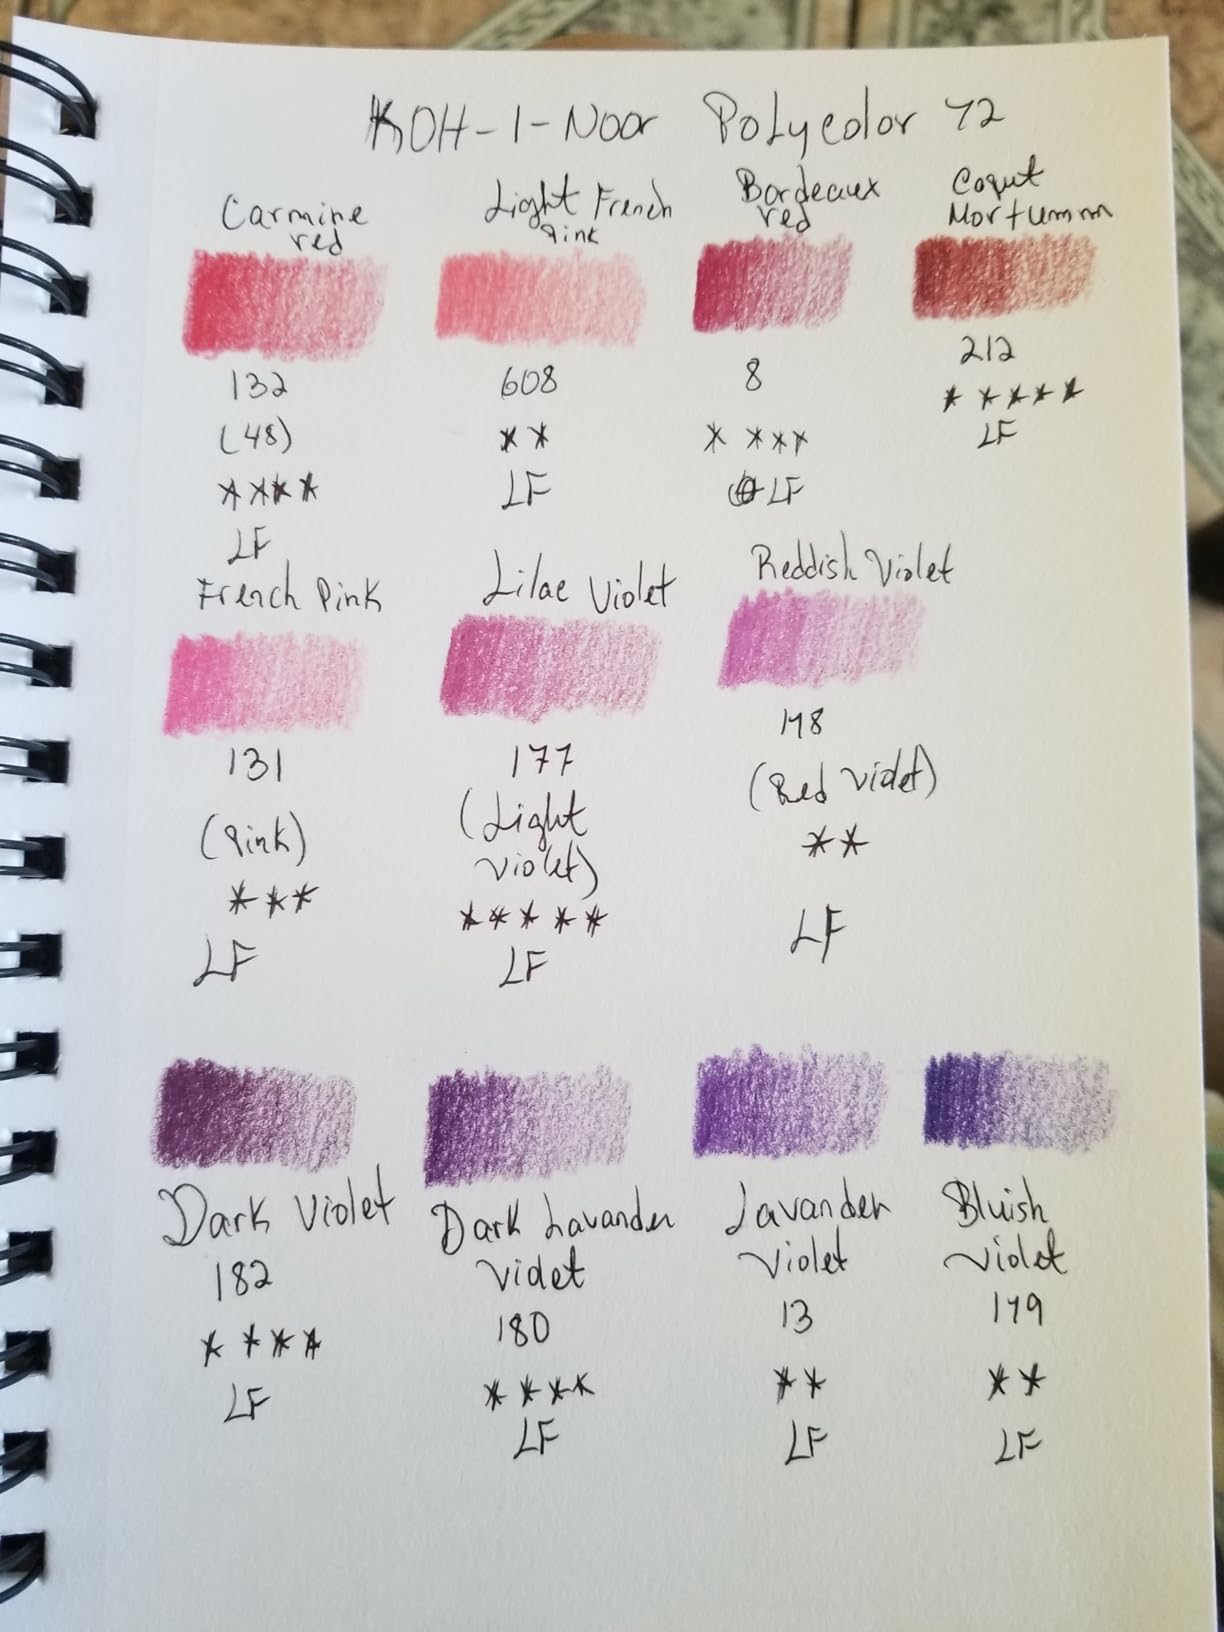 KOH-I-Noor Polycolor 72
Carmine red
132
(48)
****
LF
Light French Pink
608
**
LF
Bordeaux red
8
****
LF
Coput Mortumm
212
*****
LF
French Pink
131
(Pink)
***
LF
Lilac Violet
177
(Light Violet)
*****
LF
Reddish Violet
178
(Red Violet)
**
LF
Dark Violet
182
****
LF
Dark Lavander Violet
180
****
LF
Lavander Violet
13
**
LF
Bluish Violet
179
**
LF